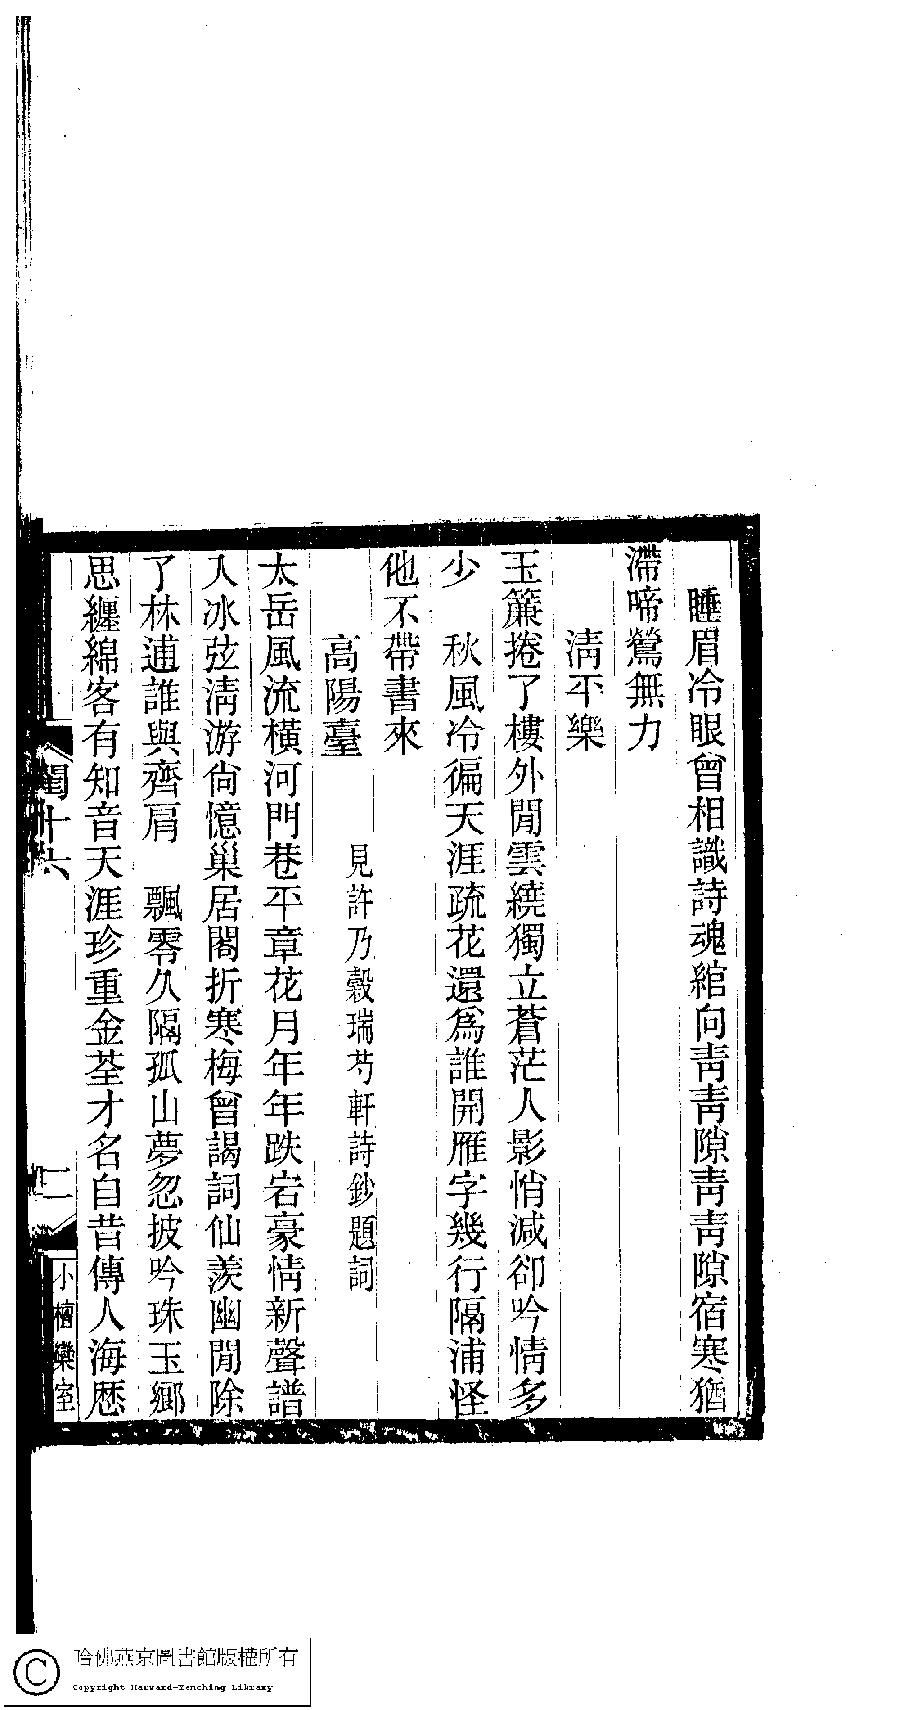 睡眉冷眼曾相識詩魂綰向靑靑隙靑靑隙宿寒猶
滯啼鶯無力
淸平樂
玉簾捲了樓外閒雲繞獨立蒼茫人影悄減卻吟情多
少　秋風冷徧天涯疏花還爲誰開雁字幾行隔浦怪
他不帶書來
高陽臺　見許乃穀瑞芍軒詩鈔題詞
太岳風流橫河門巷平章花月年年跌宕豪情新聲譜
入冰弦淸游尙憶巢居閣折寒梅曾謁詞仙羨幽閒除
了林逋誰與齊肩　飄零久隔孤山夢忽披吟珠玉鄉
思纏綿客有知音天涯珍重金荃才名自昔傳人海歷
閨十六
二
小檀欒室
哈佛燕京圖書館版權所有
Copyright Harvard-Yenching Library